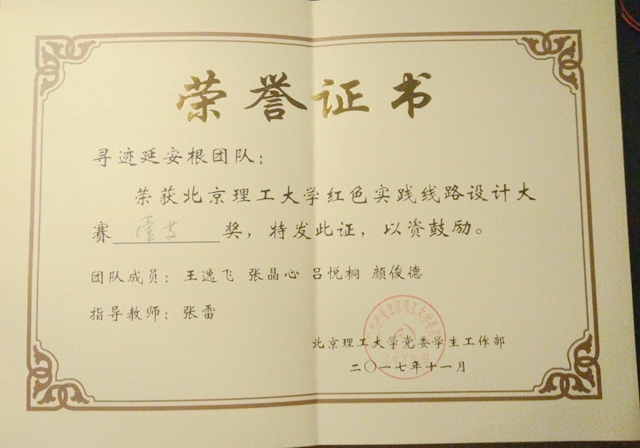 荣誉证书
寻迹延安根团队：
荣获北京理工大学红色实践线路设计大
赛 壹等 奖，特发此证，以资鼓励。
团队成员：王逸飞 张晶心 吕悦桐 颜俊德
指导教师：张雷
北京理工大学党委学生工作部
二〇一七年十一月